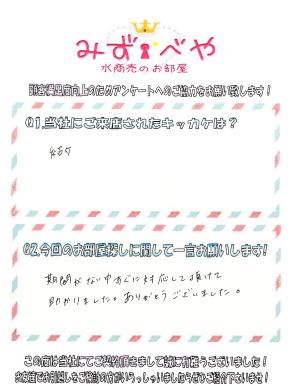 みずべや
水商売のお部屋
顧客満足度向上のためアンケートへのご協力をお願い致します!
Q1.当社にご来店されたキッカケは?
紹介
Q2.今回のお部屋探しに関して一言お願いします!
期間がない中すぐに対応して頂けて
助かりました。ありがとうございました。
この度は当社にてご契約頂きまして誠に有難うございました!
お友達でお部屋探しをご検討の方がいらっしゃいましたらぜひご紹介下さいませ!